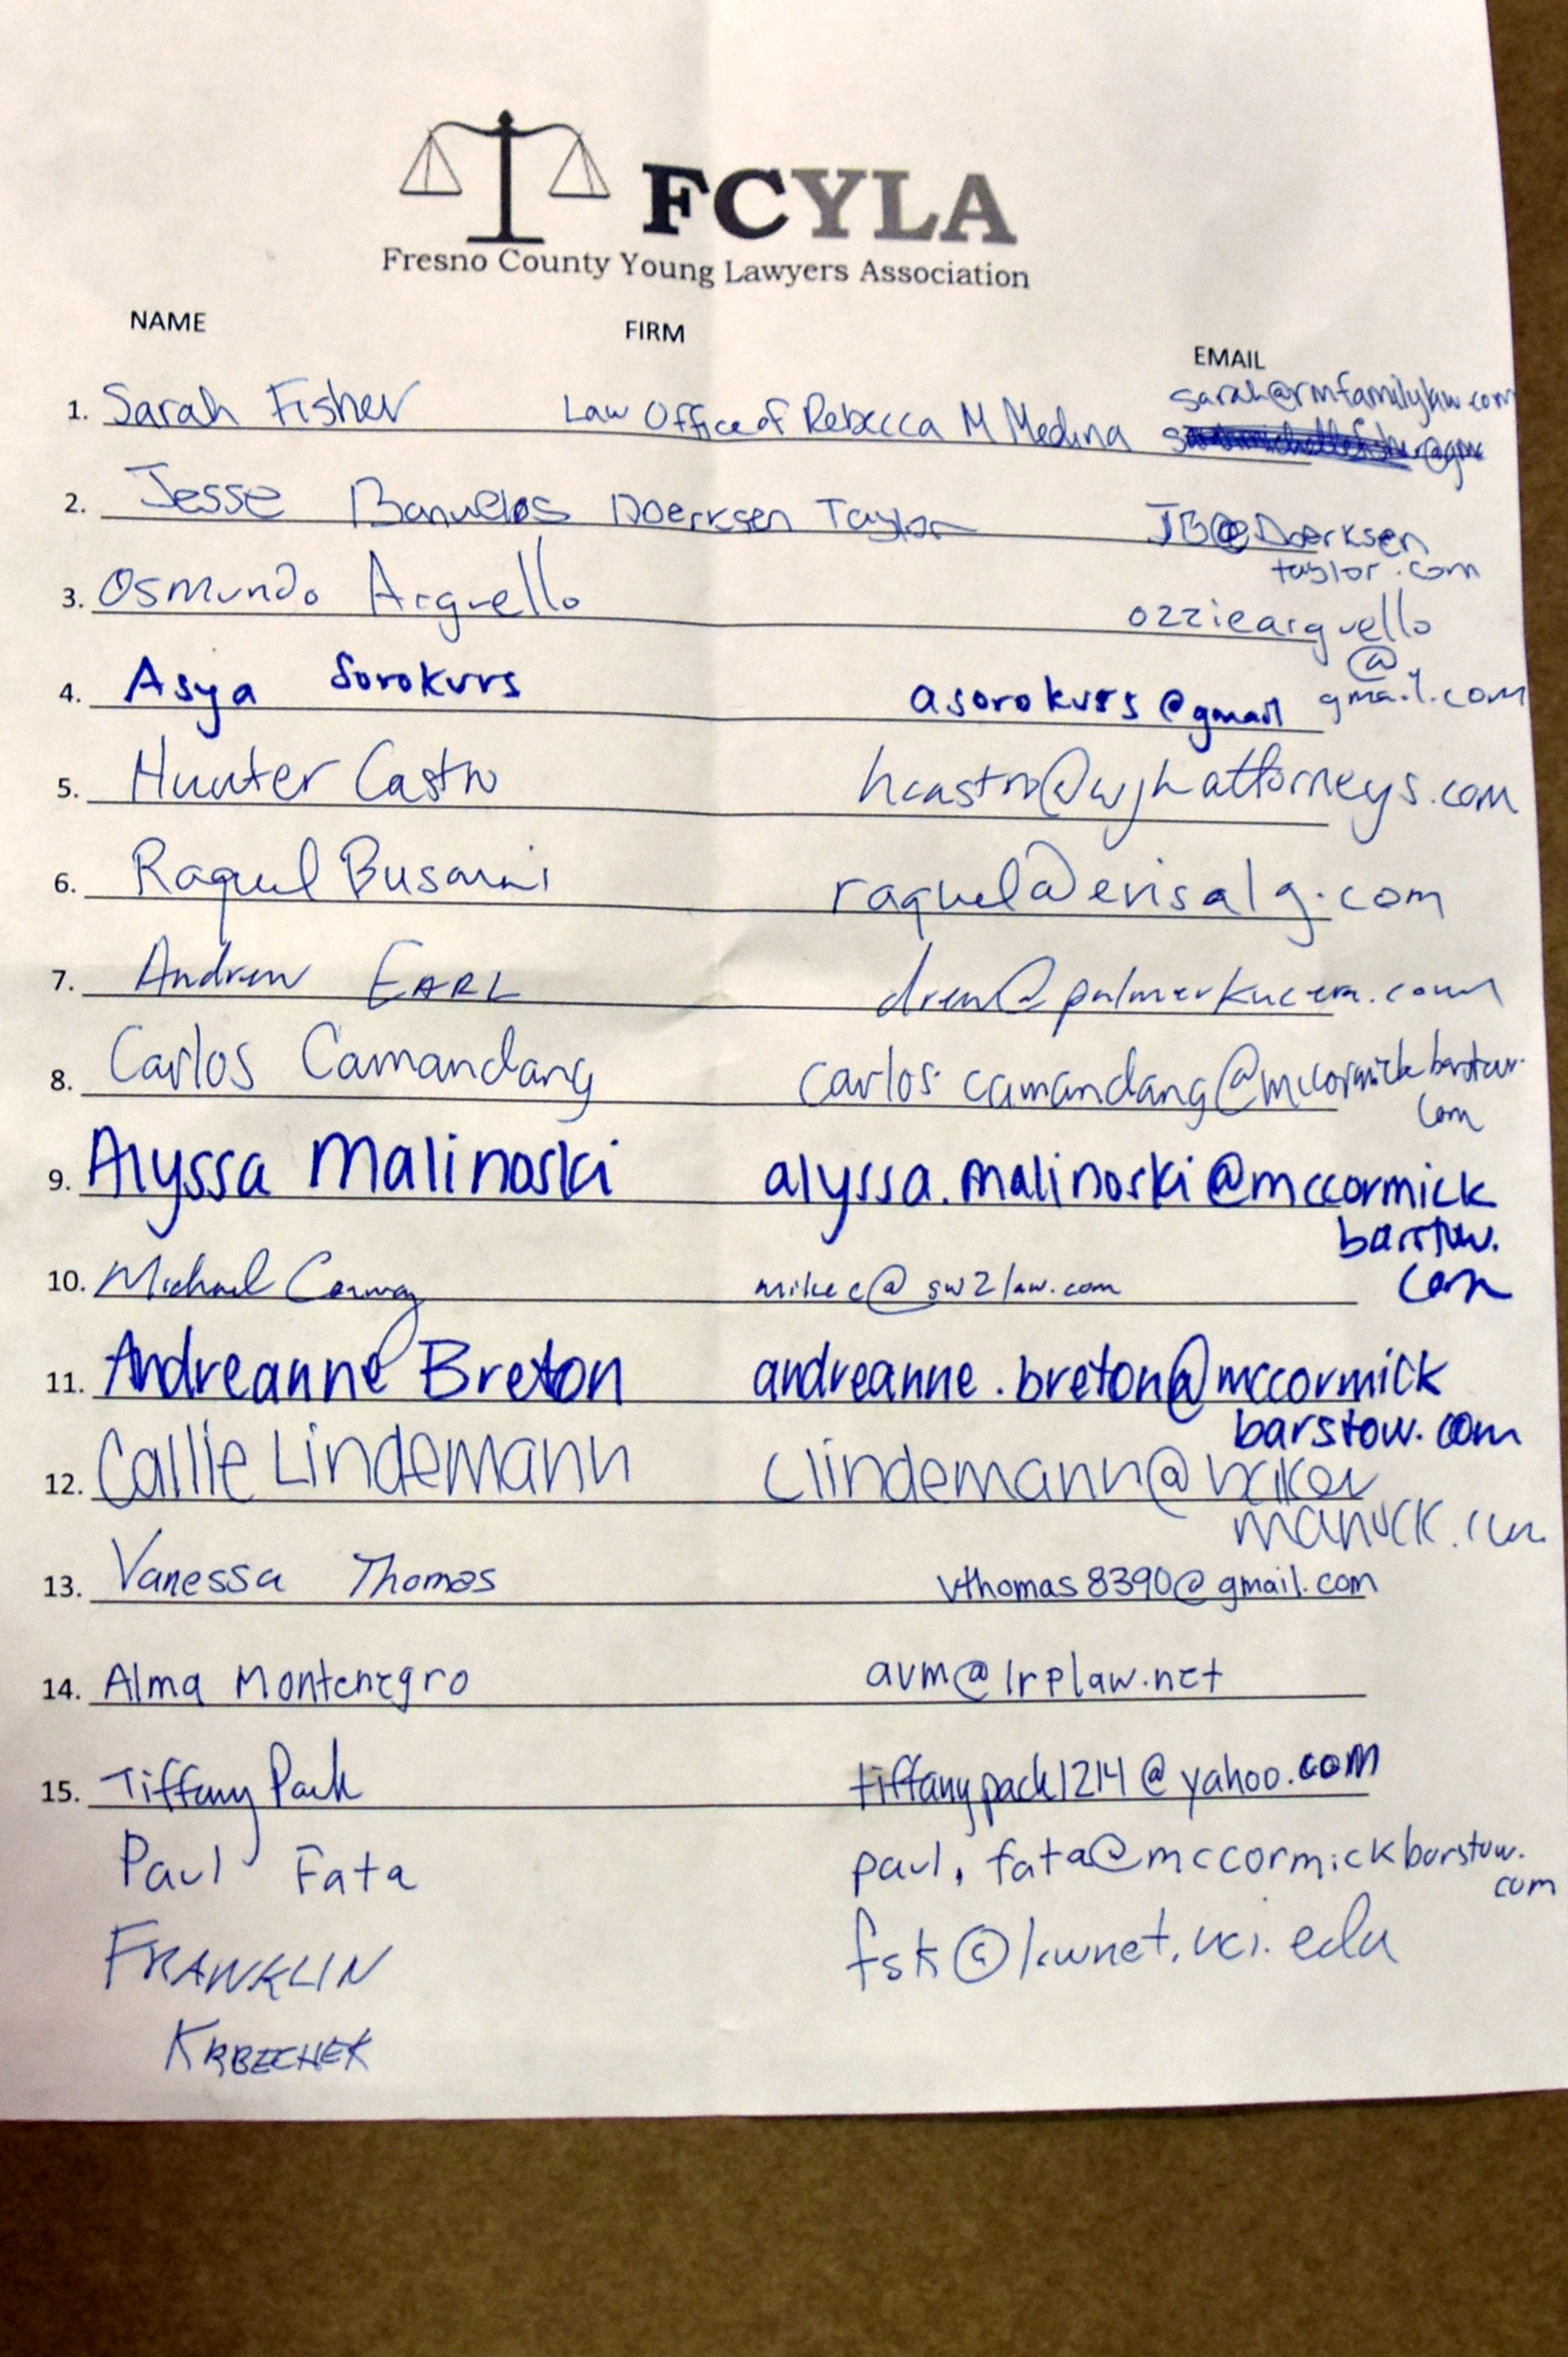 FCYLA
Fresno County Young Lawyers Association
NAME FIRM EMAIL
1. Sarah Fisher Law Office of Rebecca M Medina sarah@rmfamilylaw.com
2. Jesse Banuelos Doerksen Taylor JB@Doerksen
taylor.com
3. Osmundo Arguello ozziearguello
@
gmail.com
4. Asya Sorokurs asorokurs@gmail
5. Hunter Castro hcastro@wjhattorneys.com
6. Raquel Busani raquel@erisalg.com
7. Andrew EARL drew@palmerkucera.com
8. Carlos Camandang carlos.camandang@mccormickbarstow.
com
9. Alyssa Malinoski alyssa.malinoski@mccormick
barstow.
com
10. Michael Conway mikec@sw2law.com
11. Andreanne Breton andreanne.breton@mccormick
barstow.com
12. Callie Lindemann clindemann@
manock.com
13. Vanessa Thomas vthomas8390@gmail.com
14. Alma Montenegro avm@lrplaw.net
15. Tiffany Pack tiffanypack1214@yahoo.com
Paul Fata paul.fata@mccormickbarstow.
com
FRANKLIN fsk@lawnet.uci.edu
KRBECHEK